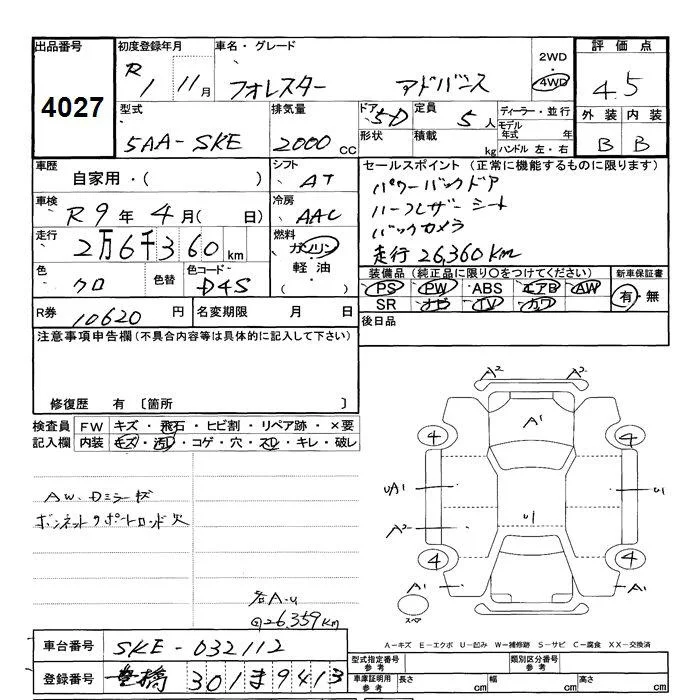 出品番号 4027
初度登録年月 R1 11月
車名・グレード フォレスター アドバンス
2WD・4WD
評価点 4.5
型式 5AA-SKE
排気量 2000 CC
ドア 5D
形状
定員 5人
積載 kg
ディーラー・並行
モデル年式 年
ハンドル 左・右
外装 B 内装 B
車歴 自家用・( )
シフト AT
車検 R9年4月( 日)
冷房 AAC
走行 2万6千360km
燃料 ガソリン・軽油・( )
色 クロ
色替
色コード D4S
セールスポイント(正常に機能するものに限ります)
パワーバックドア
ハーフレザーシート
バックカメラ
走行26,360km
装備品(純正品に限り○をつけてください)
新車保証書
PS PW ABS エアB AW
SR ナビ TV カワ
有・無
R券 10620円
名変期限 月 日
後日品
注意事項申告欄(不具合内容等は具体的に記入して下さい)
修復歴 有 〔箇所 〕
検査員記入欄
FW キズ・飛石・ヒビ割・リペア跡・×要
内装 キズ・汚レ・コゲ・穴・スレ・キレ・破レ
AW.Dミラーキズ
ボンネットサポートロッド欠
各A-U
@26,359km
A² A²
A¹
4 4
UA¹ U1
A²
U1
4 4
A¹ A¹
スペア
A-キズ E-エクボ U-凹み W-補修跡 S-サビ C-腐食 XX-交換済
車台番号 SKE-032112
登録番号 豊橋 301ま9413
型式指定番号 参考
類別区分番号 参考
車庫証明用 参考
長さ cm 幅 cm 高さ cm